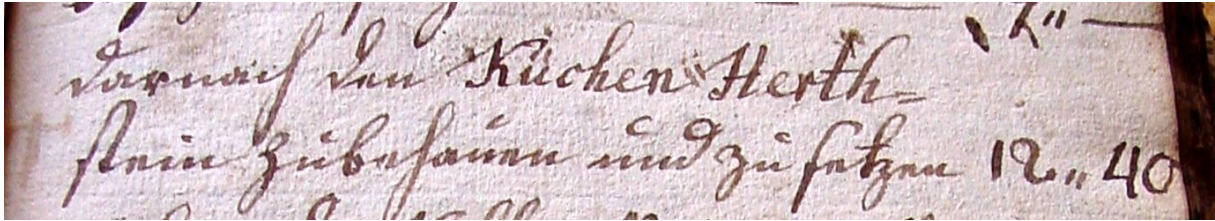 darnach den Küchen Herth=
stein zubehauen und zu setzen 12„ 40